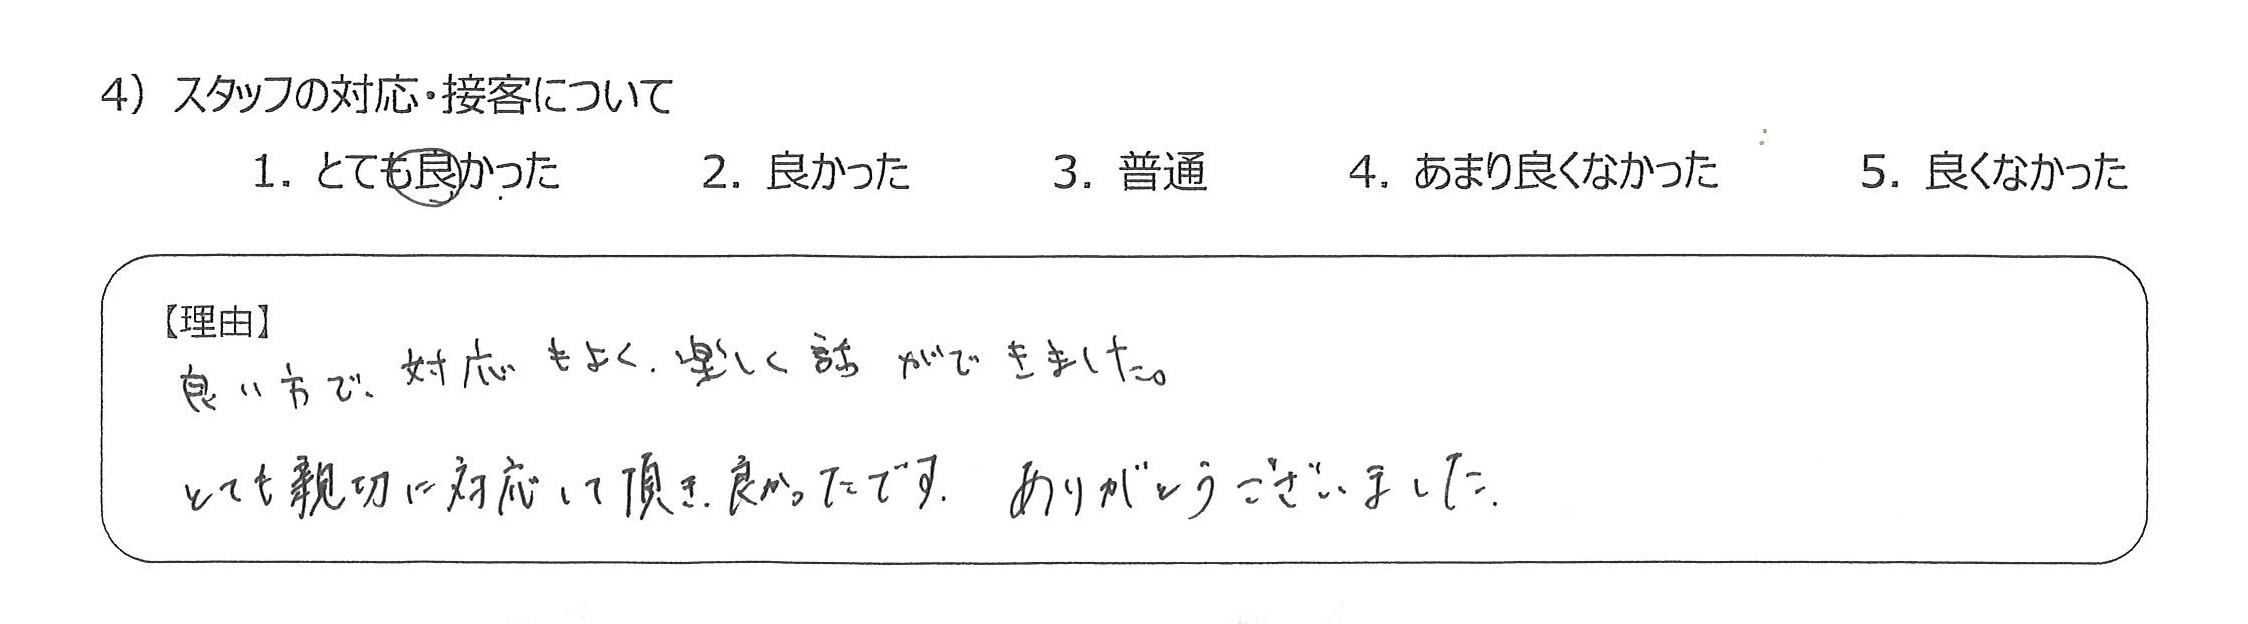 4）スタッフの対応・接客について
1. とても良かった　2. 良かった　3. 普通　4. あまり良くなかった　5. 良くなかった
【理由】
良い方で、対応もよく、楽しく話ができました。
とても親切に対応して頂き、良かったです。ありがとうございました。